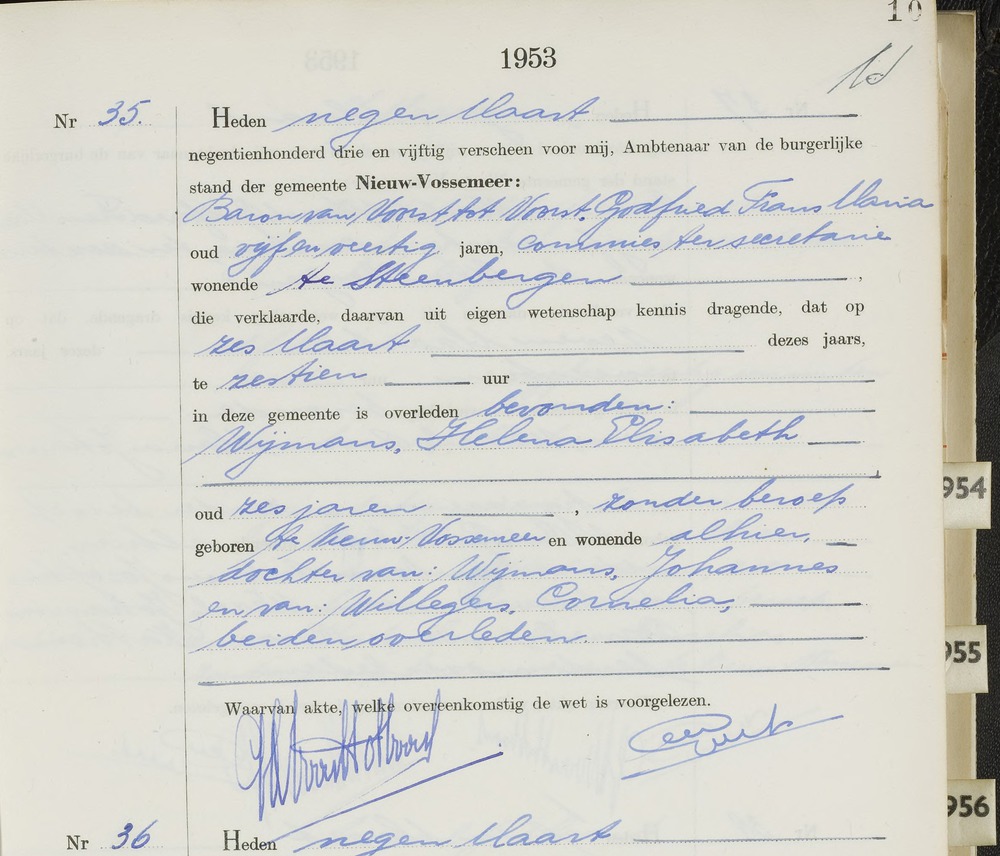 10
1953
1d
Nr 35. Heden negen Maart
negentienhonderd drie en vijftig verscheen voor mij, Ambtenaar van de burgerlijke
stand der gemeente Nieuw-Vossemeer:
Baron van Voorst tot Voorst, Godfried Frans Maria
oud vijf en veertig jaren, commies ter secretarie
wonende te Steenbergen ,
die verklaarde, daarvan uit eigen wetenschap kennis dragende, dat op
zes Maart dezes jaars,
te zestien uur
in deze gemeente is overleden bevonden:
Wijmans, Helena Elisabeth
oud zes jaren , zonder beroep
geboren te Nieuw-Vossemeer en wonende alhier,
dochter van: Wijmans, Johannes
en van: Willegers, Cornelia,
beiden overleden.
Waarvan akte, welke overeenkomstig de wet is voorgelezen.
Nr 36 Heden negen Maart
954
955
956